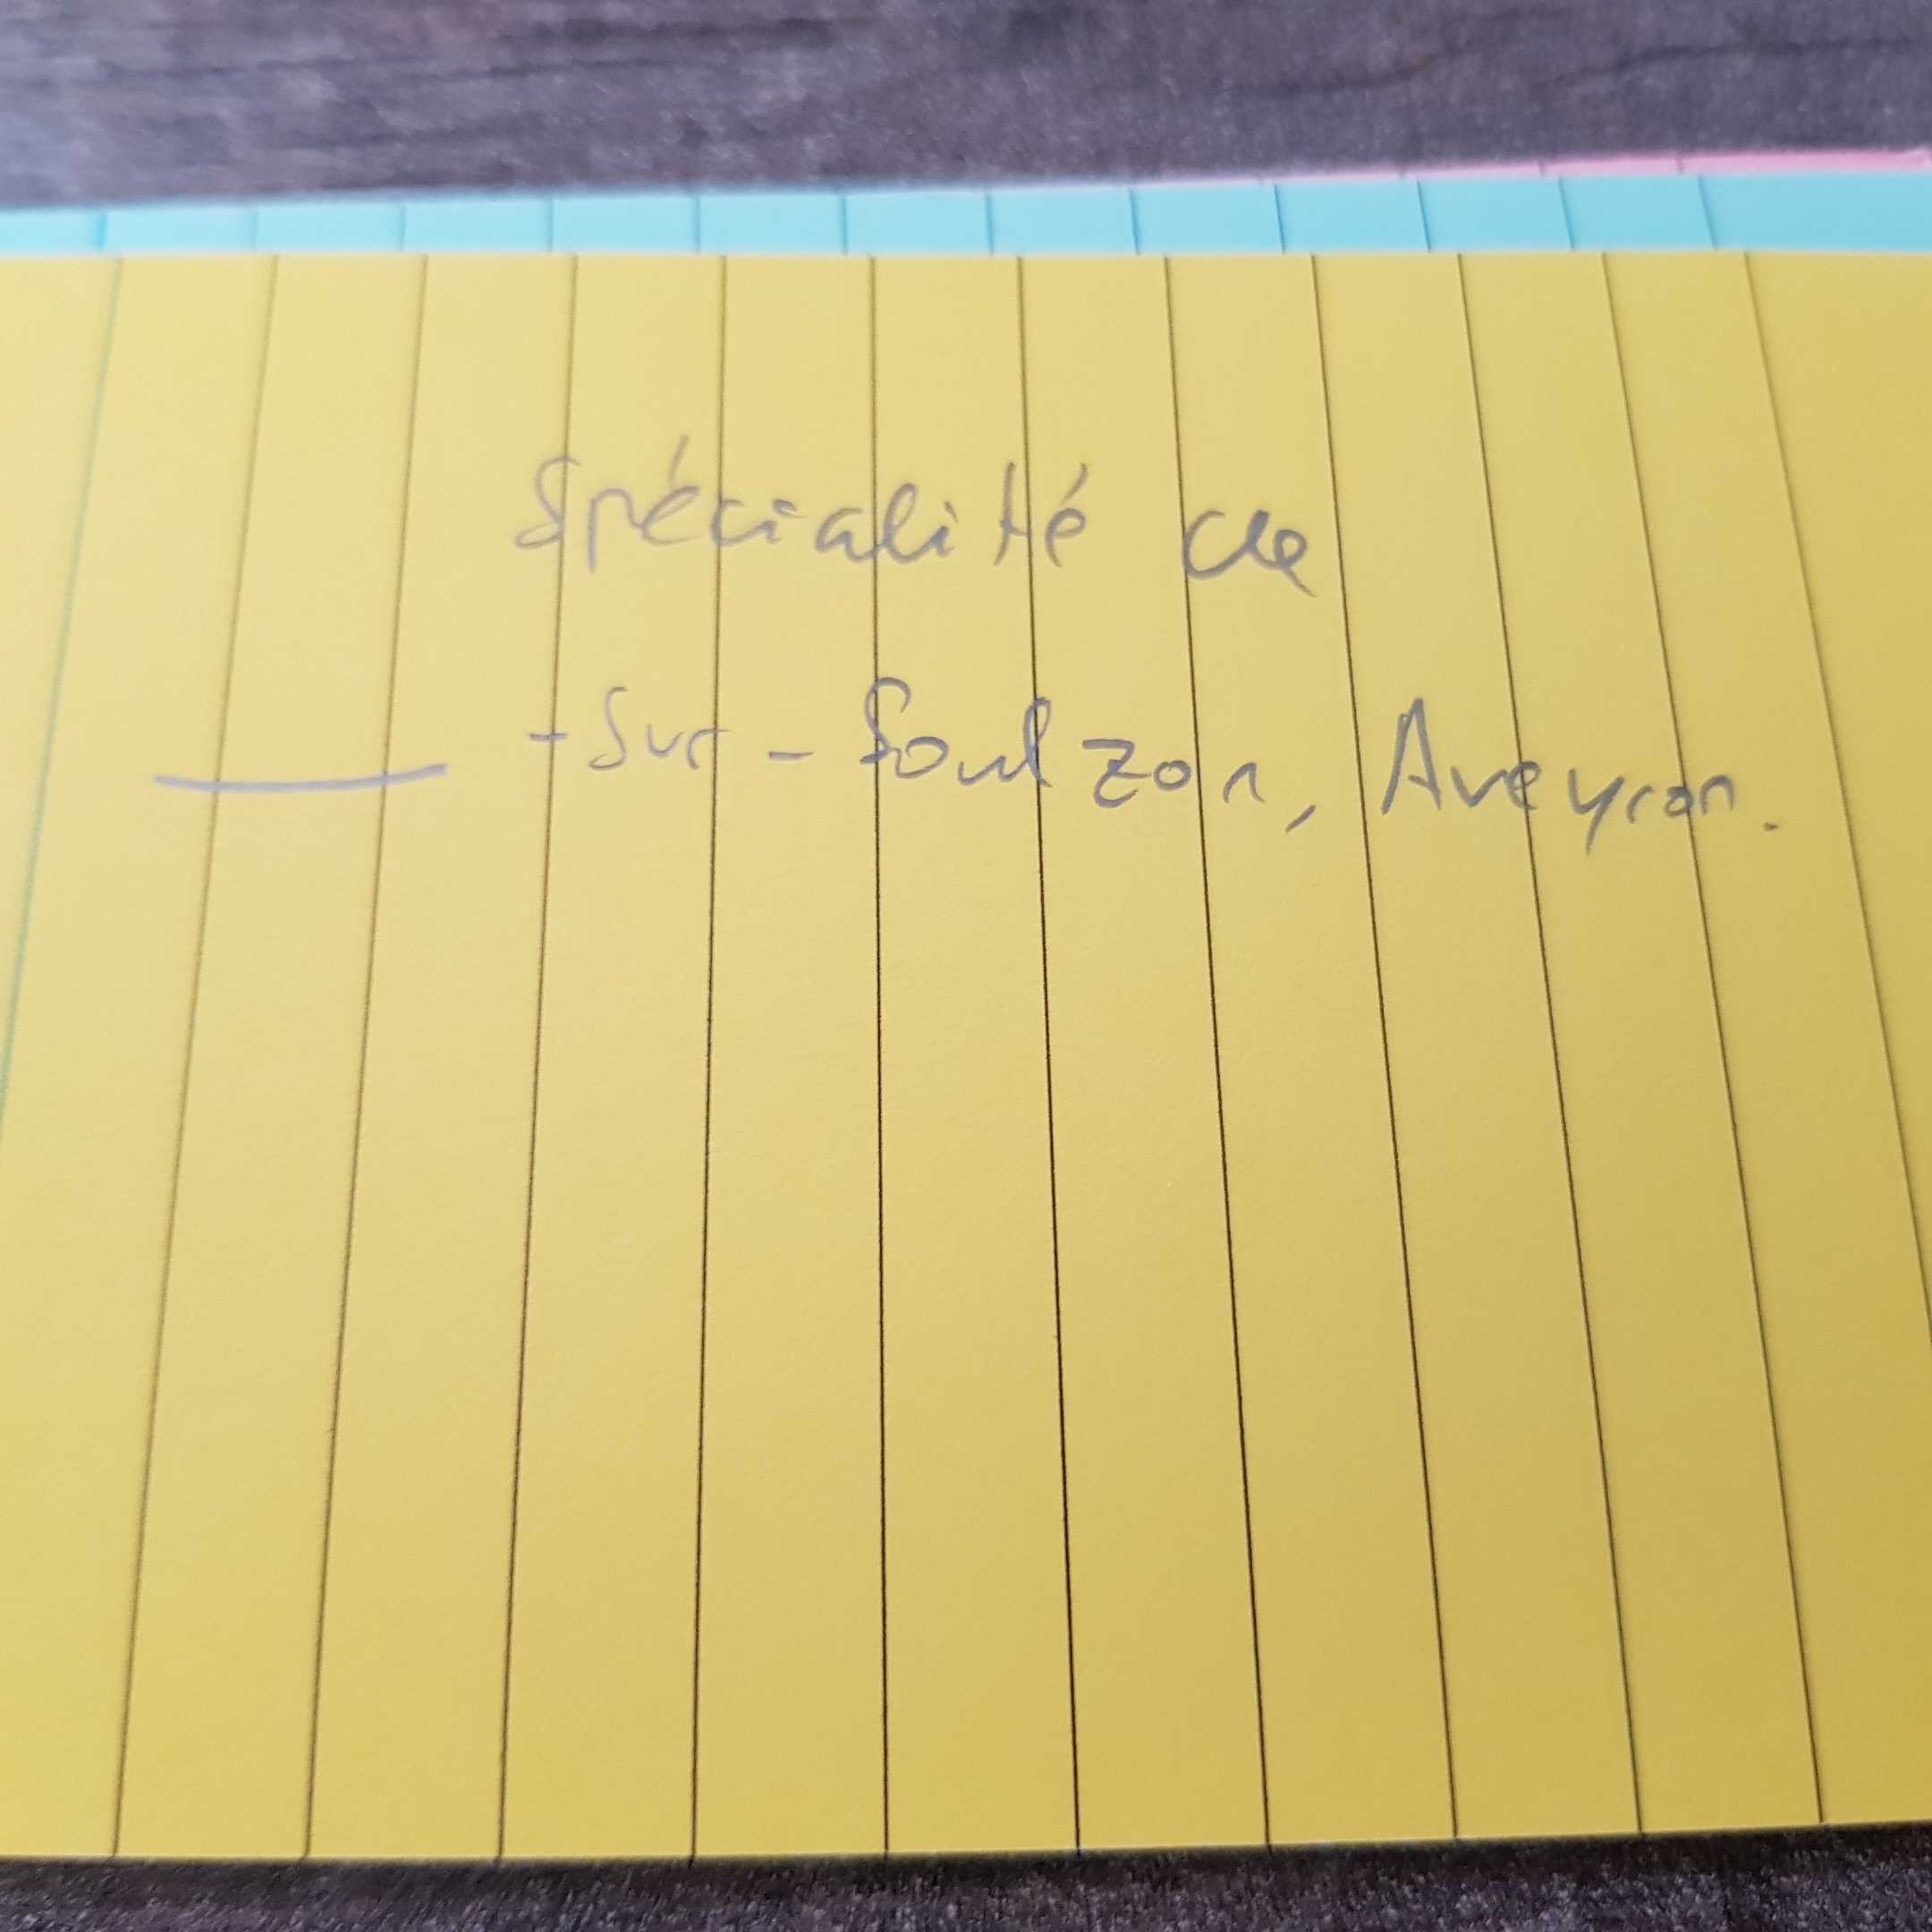 Spécialité de
____ -Sur-Soulzon, Aveyron.